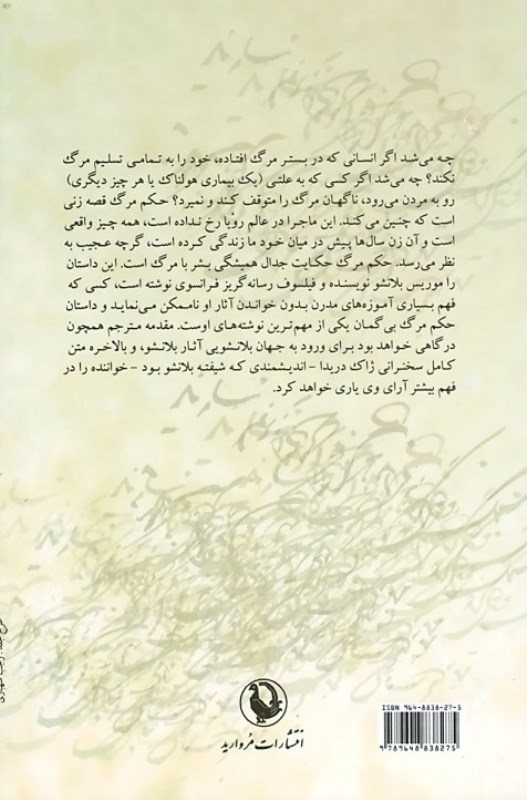 چه می‌شد اگر انسانی که در بستر مرگ افتاده، خود را به تمامی تسلیم مرگ
نکند؟ چه می‌شد اگر کسی که به علتی (یک بیماری هولناک یا هر چیز دیگری)
رو به مردن می‌رود، ناگهان مرگ را متوقف کند و نمیرد؟ حکم مرگ قصه زنی
است که چنین می‌کند. این ماجرا در عالم رؤیا رخ نداده است، همه چیز واقعی
است و آن زن سال‌ها پیش در میان خود ما زندگی کرده است، گرچه عجیب به
نظر می‌رسد. حکم مرگ حکایت جدال همیشگی بشر با مرگ است. این داستان
را موریس بلانشو نویسنده و فیلسوف رسانه‌گریز فرانسوی نوشته است، کسی که
فهم بسیاری آموزه‌های مدرن بدون خواندن آثار او ناممکن می‌نماید و داستان
حکم مرگ بی‌گمان یکی از مهم‌ترین نوشته‌های اوست. مقدمه مترجم همچون
درگاهی خواهد بود برای ورود به جهان بلانشویی آثار بلانشو، و بالاخره متن
کامل سخنرانی ژاک دریدا -اندیشمندی که شیفته بلانشو بود -خواننده را در
فهم بیشتر آرای وی یاری خواهد کرد.
انتشارات مروارید
ISBN 964-8838-27-5
9789648838275